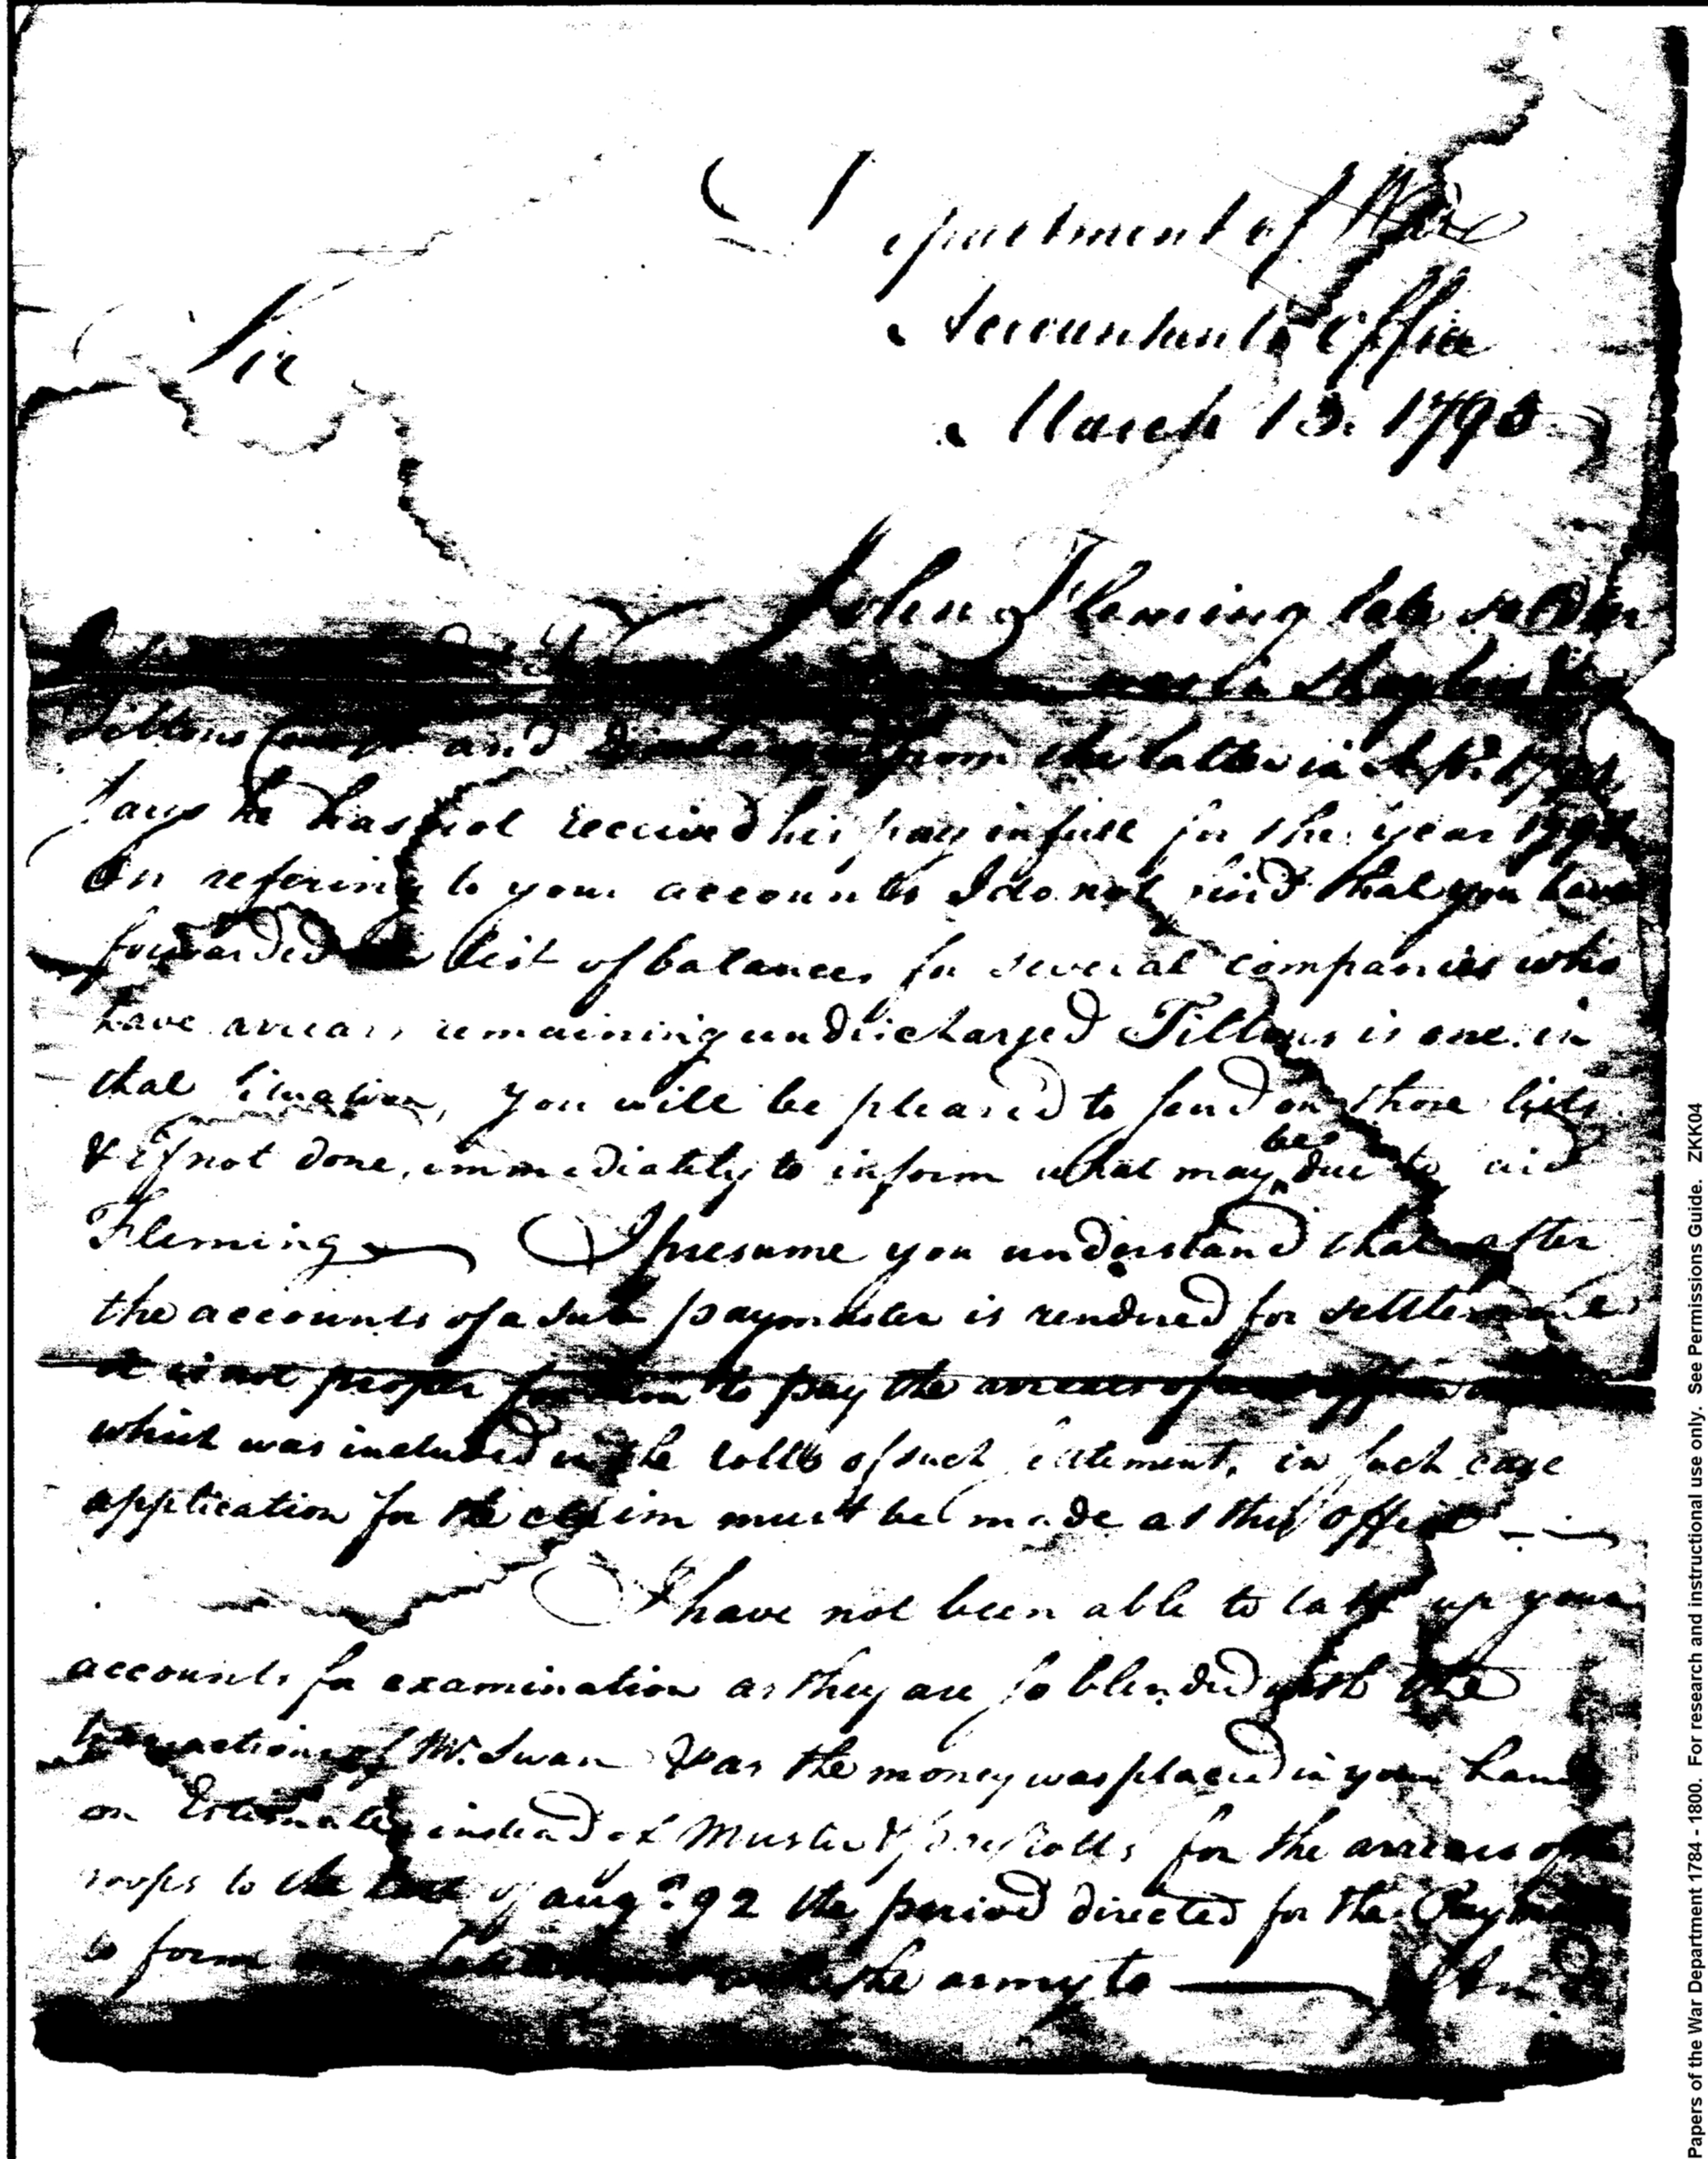 epartment of War
Accountants Office
March 13. 1793
Sir
John Fleming late
was in
Tiltons and from the latter in Sept. 
Says he has not received his pay in full for the year
On refering to your accounts I do not find that you have
forwarded list of balances for several companies who
have arrears remaining undischarged Tiltons is one in
that situation, you will be pleased to send on those lists
& if not done, immediately to inform what may be due to aid
Fleming — I presume you understand that after
the accounts of a Sub paymaster is rendred for settlement
it is not proper for him to pay the arrears of
which was included in the rolls of such settlement, in such case
application for the claim must be made at this office —
I have not been able to take up your
accounts for examination as they are so blended with the
transactions of Mr. Swan & as the money was placed in your hands
on Estimates instead of Muster & pay rolls for the arrears of the
roops to the last of augt. 92 the period directed for the
to form the army to —
Papers of the War Department 1784 - 1800. For research and instructional use only. See Permissions Guide. ZKK04